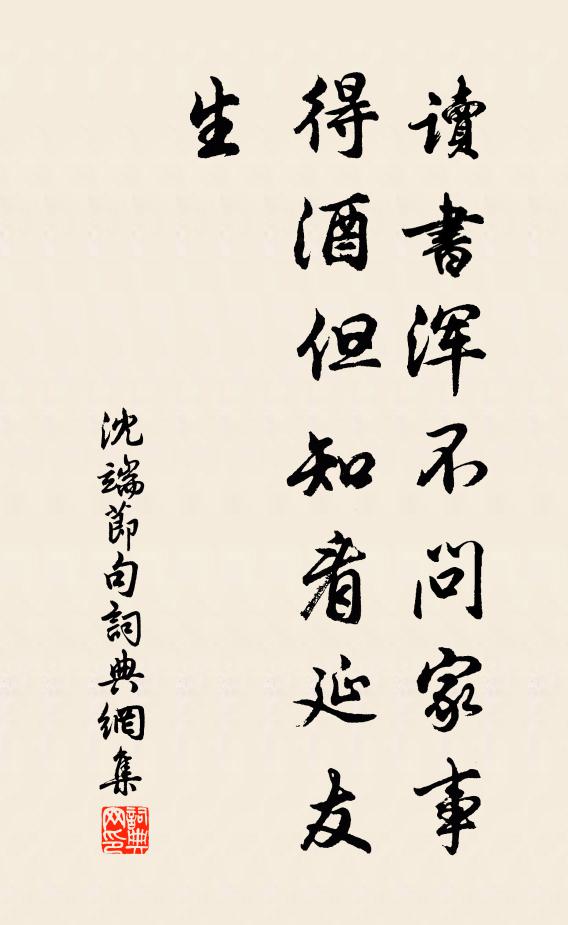 讀書渾不問家事
得酒但知看延友
生
沈端節句詞典網集
詞典网印